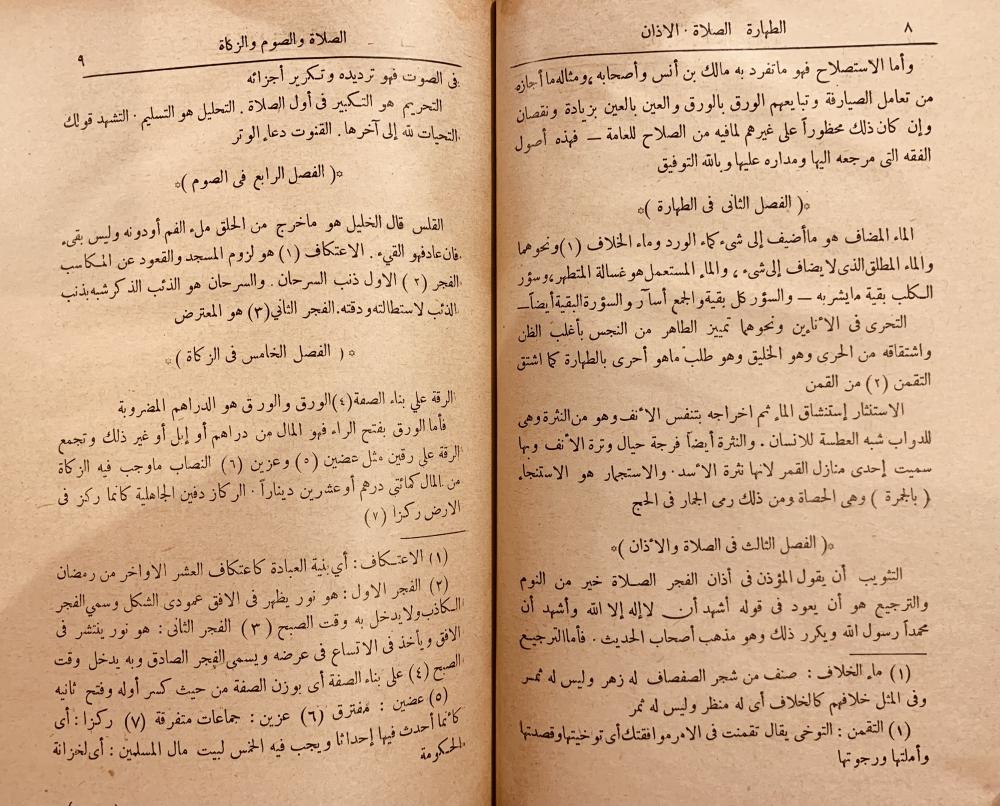 ٨ الطهارة الصلاة . الاذان
وأما الاستصلاح فهو ماتفرد به مالك بن أنس وأصحابه ،ومثاله ما أجازه
من تعامل الصيارفة وتبايعهم الورق بالورق والعين بالعين بزيادة ونقصان
وإن كان ذلك محظوراً على غيرهم لمافيه من الصلاح للعامة — فهذه أصول
الفقه التى مرجعه اليها ومداره عليها وبالله التوفيق
*( الفصل الثانى فى الطهارة )*
الماء المضاف هو ماأضيف إلى شىء كماء الورد وماء الخلاف (١) ونحوهما
والماء المطلق الذى لا يضاف إلى شىء ، والماء المستعمل هو غسالة المتطهر ، وسؤر
الكلب بقية مايشر به — والسؤر كل بقية والجمع أسآر والسؤرة البقية أيضاً —
التحرى فى الأناءين ونحوهما تمييز الطاهر من النجس بأغلب الظن
واشتقاقه من الحرى وهو الخليق وهو طلب ماهو أحرى بالطهارة كما اشتق
التقمن (٢) من القمن
الاستنثار إستنشاق الماء ثم اخراجه بتنفس الأنف وهو من النثرة وهى
للدواب شبه العطسة للانسان . والنثرة أيضاً فرجة حيال وترة الأنف وبها
سميت إحدى منازل القمر لانها نثرة الأسد . والاستجمار هو الاستنجاء
( بالجمرة ) وهى الحصاة ومن ذلك رمى الجمار فى الحج
*( الفصل الثالث فى الصلاة والأذان )*
التثويب أن يقول المؤذن فى أذان الفجر الصلاة خير من النوم
والترجيع هو أن يعود فى قوله أشهد أن لاإله إلا الله وأشهد أن
محمداً رسول الله ويكرر ذلك وهو مذهب أصحاب الحديث . فأماالترجيع
(١) ماء الخلاف : صنف من شجر الصفصاف له زهر وليس له ثمر
وفى المثل خلافهم كالخلاف أى له منظر وليس له ثمر
(١) التقمن : التوخى يقال تقمنت فى الامر موافقتك أى توخيتها وقصدتها
وأملتها ورجوتها
الصلاة والصوم والزكاة ٩
فى الصوت فهو ترديده وتكرير أجزائه
التحريم هو التكبير فى أول الصلاة . التحليل هو التسليم . التشهد قولك
التحيات لله إلى آخرها . القنوت دعاء الوتر
*( الفصل الرابع فى الصوم )*
القلس قال الخليل هو ماخرج من الحلق ملء الفم أودونه وليس بقىء
فان عاد فهو القيء . الاعتكاف (١) هو لزوم المسجد والقعود عن المكاسب
الفجر (٢) الاول ذنب السرحان . والسرحان هو الذئب الذكر شبه بذنب
الذئب لاستطالته ودقته . الفجر الثاني (٣) هو المعترض
* ( الفصل الخامس فى الزكاة )*
الرقة علي بناء الصفة (٤) الورق والورق هو الدراهم المضروبة
فأما الورق بفتح الراء فهو المال من دراهم أو إبل أو غير ذلك وتجمع
الرقة على رقين مثل عضين (٥) وعزين (٦) النصاب ماوجب فيه الزكاة
من المال كمائتى درهم أو عشرين ديناراً . الركاز دفين الجاهلية كانما ركز فى
الارض ركزا (٧)
(١) الاعتكاف : أي بنية العبادة كاعتكاف العشر الاواخر من رمضان
(٢) الفجر الاول : هو نور يظهر فى الافق عمودى الشكل وسمي الفجر
الكاذب ولا يدخل به وقت الصبح (٣) الفجر الثانى : هو نور ينتشر فى
الافق ويأخذ فى الاتساع فى عرضه ويسمى الفجر الصادق وبه يدخل وقت
الصبح (٤) على بناء الصفة أى بوزن الصفة من حيث كسر أوله وفتح ثانيه
(٥) عضين : مفترق (٦) عزين : جماعات متفرقة (٧) ركزا : أى
كانما أحدث فيها إحداثا ويجب فيه الخمس لبيت مال المسلمين : أى لخزانة
الحكومة